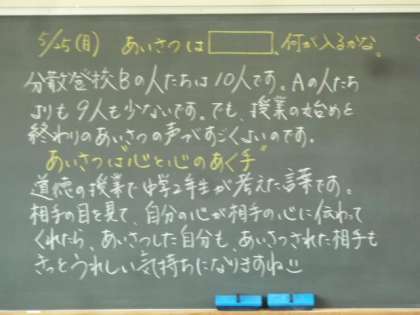 5/25(月) あいさつは□、何が入るかな。
分散登校Bの人たちは10人です。Aの人たち
よりも9人も少ないです。でも、授業の始めと
終わりのあいさつの声がすごくよいのです。
あいさつは“心と心のあく手”
道徳の授業で中学2年生が考えた言葉です。
相手の目を見て、自分の心が相手の心に伝わって
くれたら、あいさつした自分も、あいさつされた相手も
きっとうれしい気持ちになりますね